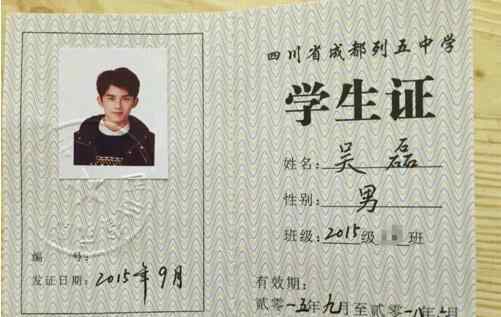 四川省成都列五中学
学生证
姓名：吴磊
性别：男
班级：2015级 班
编 号：
发证日期：2015年9月
有效期：
贰零一五年九月至贰零一八年